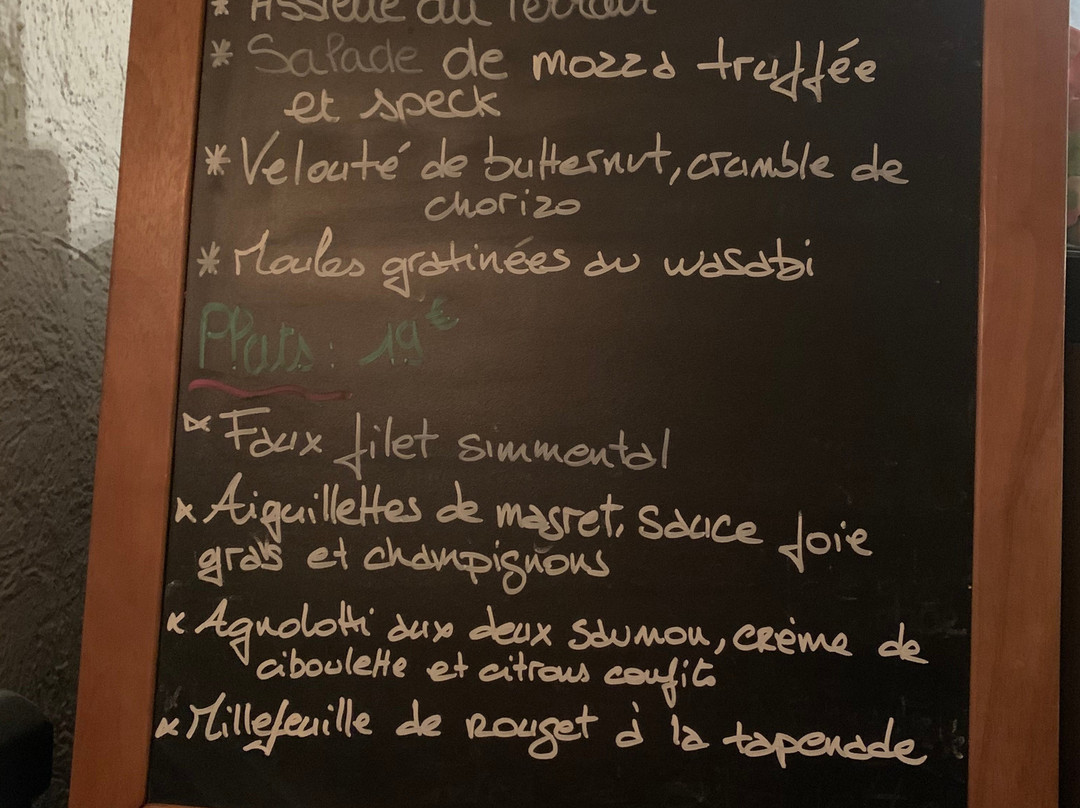 * Assiette du Terroir
* Salade de mozza truffée
et speck
* Velouté de butternut, crumble de
chorizo
* Moules gratinées au wasabi
Plats : 19€
* Faux filet simmental
* Aiguillettes de magret, sauce foie
gras et champignons
* Agnolotti aux deux saumon, crème de
ciboulette et citrons confits
* Millefeuille de rouget à la tapenade